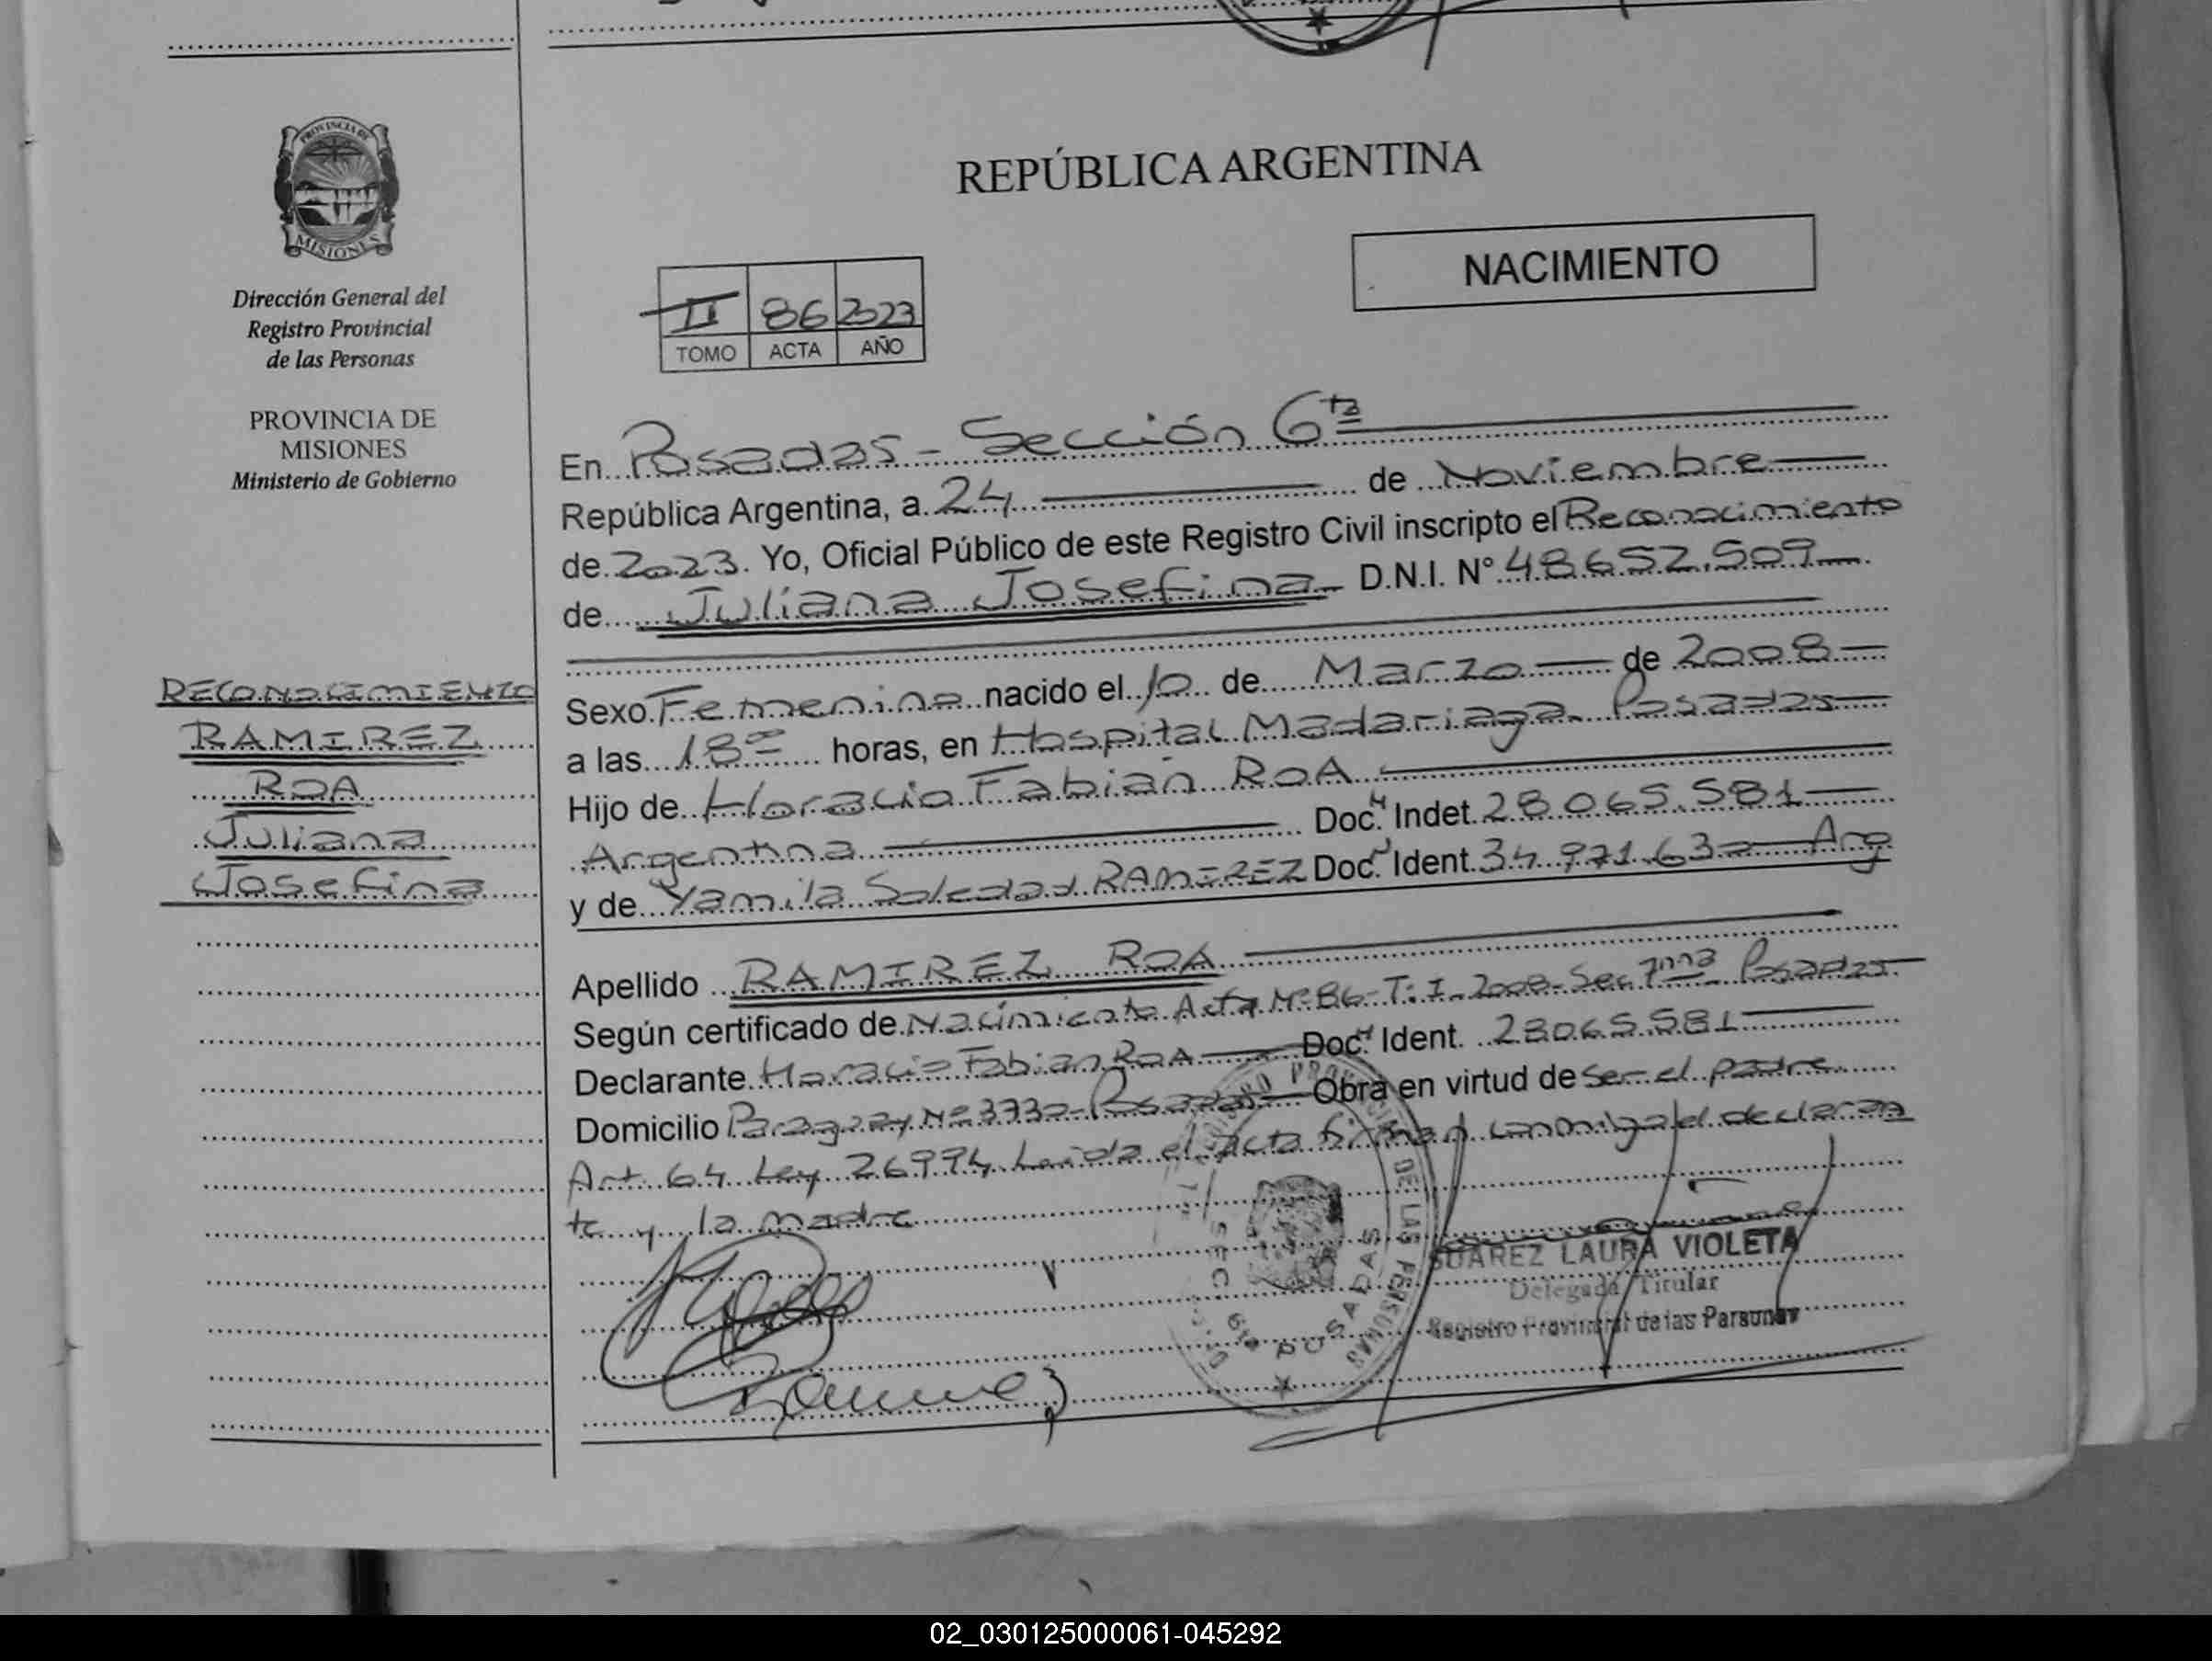 PROVINCIA DE
MISIONES
Dirección General del
Registro Provincial
de las Personas
PROVINCIA DE
MISIONES
Ministerio de Gobierno
RECONOCIMIENTO
RAMIREZ
ROA
Juliana
Josefina
REPÚBLICA ARGENTINA
NACIMIENTO
II 86 2023
TOMO ACTA AÑO
En Posadas - Sección 6ta
República Argentina, a 24 de Noviembre
de 2023. Yo, Oficial Público de este Registro Civil inscripto el Reconocimiento
de Juliana Josefina D.N.I. N° 48.652.509
Sexo Femenino nacido el 10 de Marzo de 2008
a las 18 horas, en Hospital Madariaga. Posadas
Hijo de Horacio Fabian ROA
Argentina Doc. Indet. 28.065.581
y de Yamila Soledad RAMIREZ Doc. Ident. Arg
Apellido RAMIREZ ROA
Según certificado de Nacimiento Acta Nº 86 - T: I - 2008 - Sec 7ma Posadas
Declarante Horacio Fabian ROA Doc. Ident. 28065581
Domicilio Paraguay Nº 3730 - Posadas Obra en virtud de ser el padre
Art. 64 Ley 26994 Leida el acta firman conmigo el declaran
te y la madre
Ramirez
SUAREZ LAURA VIOLETA
Delegada Titular
Registro Provincial de las Personas
REGISTRO PROVINCIAL DE LAS PERSONAS
SEC. 6ta POSADAS
02_030125000061-045292